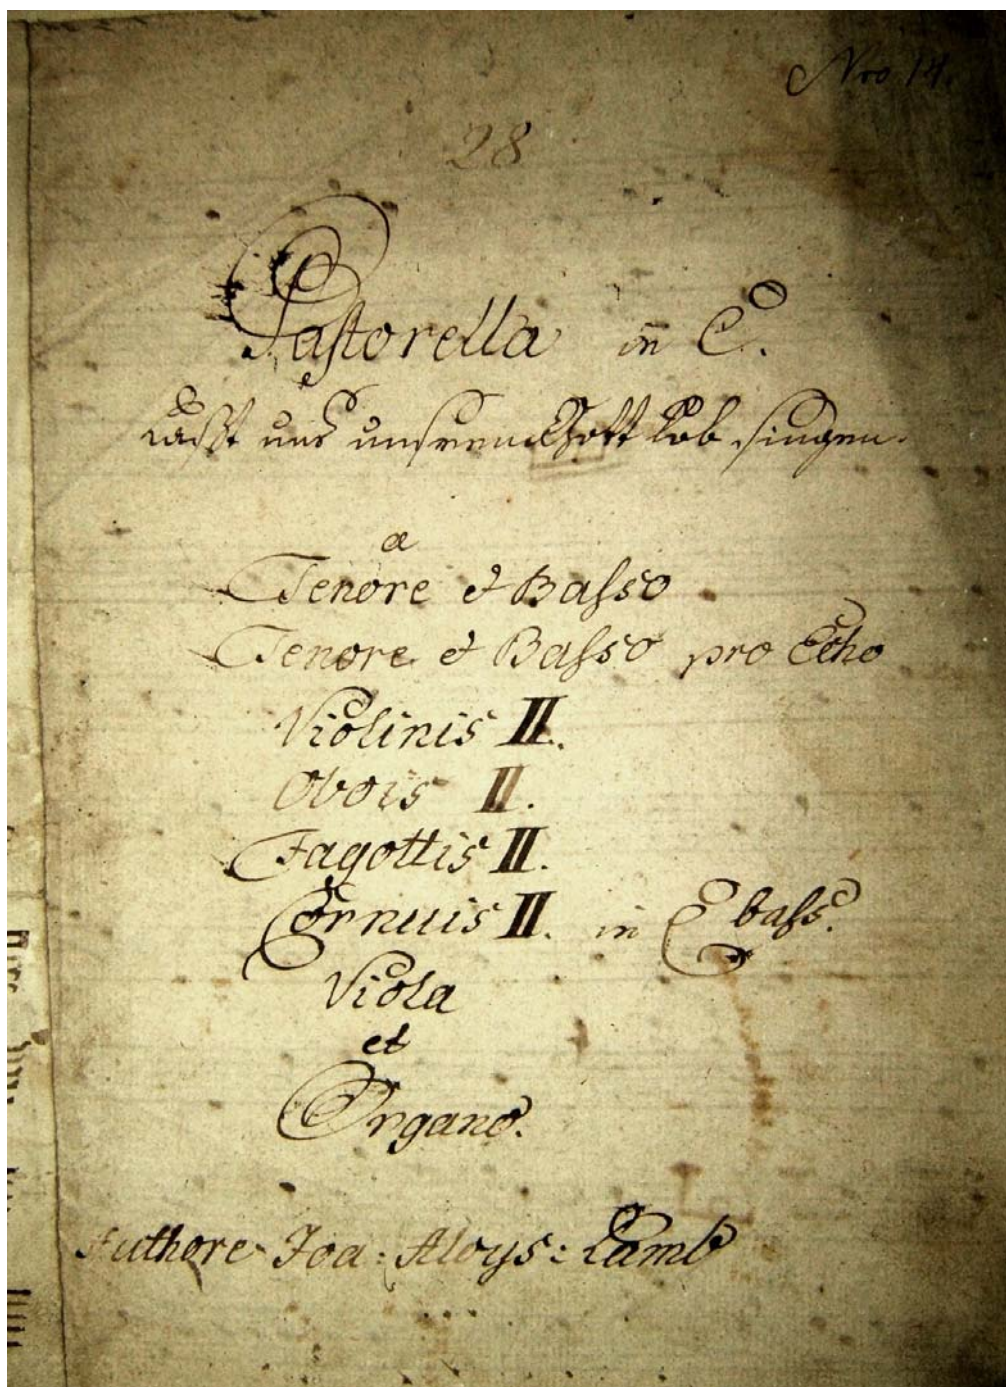 Nro 14.
28
Pastorella in C.
Lasst uns unserem Gott Lob singen.
a
Tenore et Basso
Tenore et Basso pro Echo
Violinis II.
Obois II.
Fagottis II.
Cornuis II. in C bass.
Viola
et
Organo.
Authore Joa: Aloys: Lamb